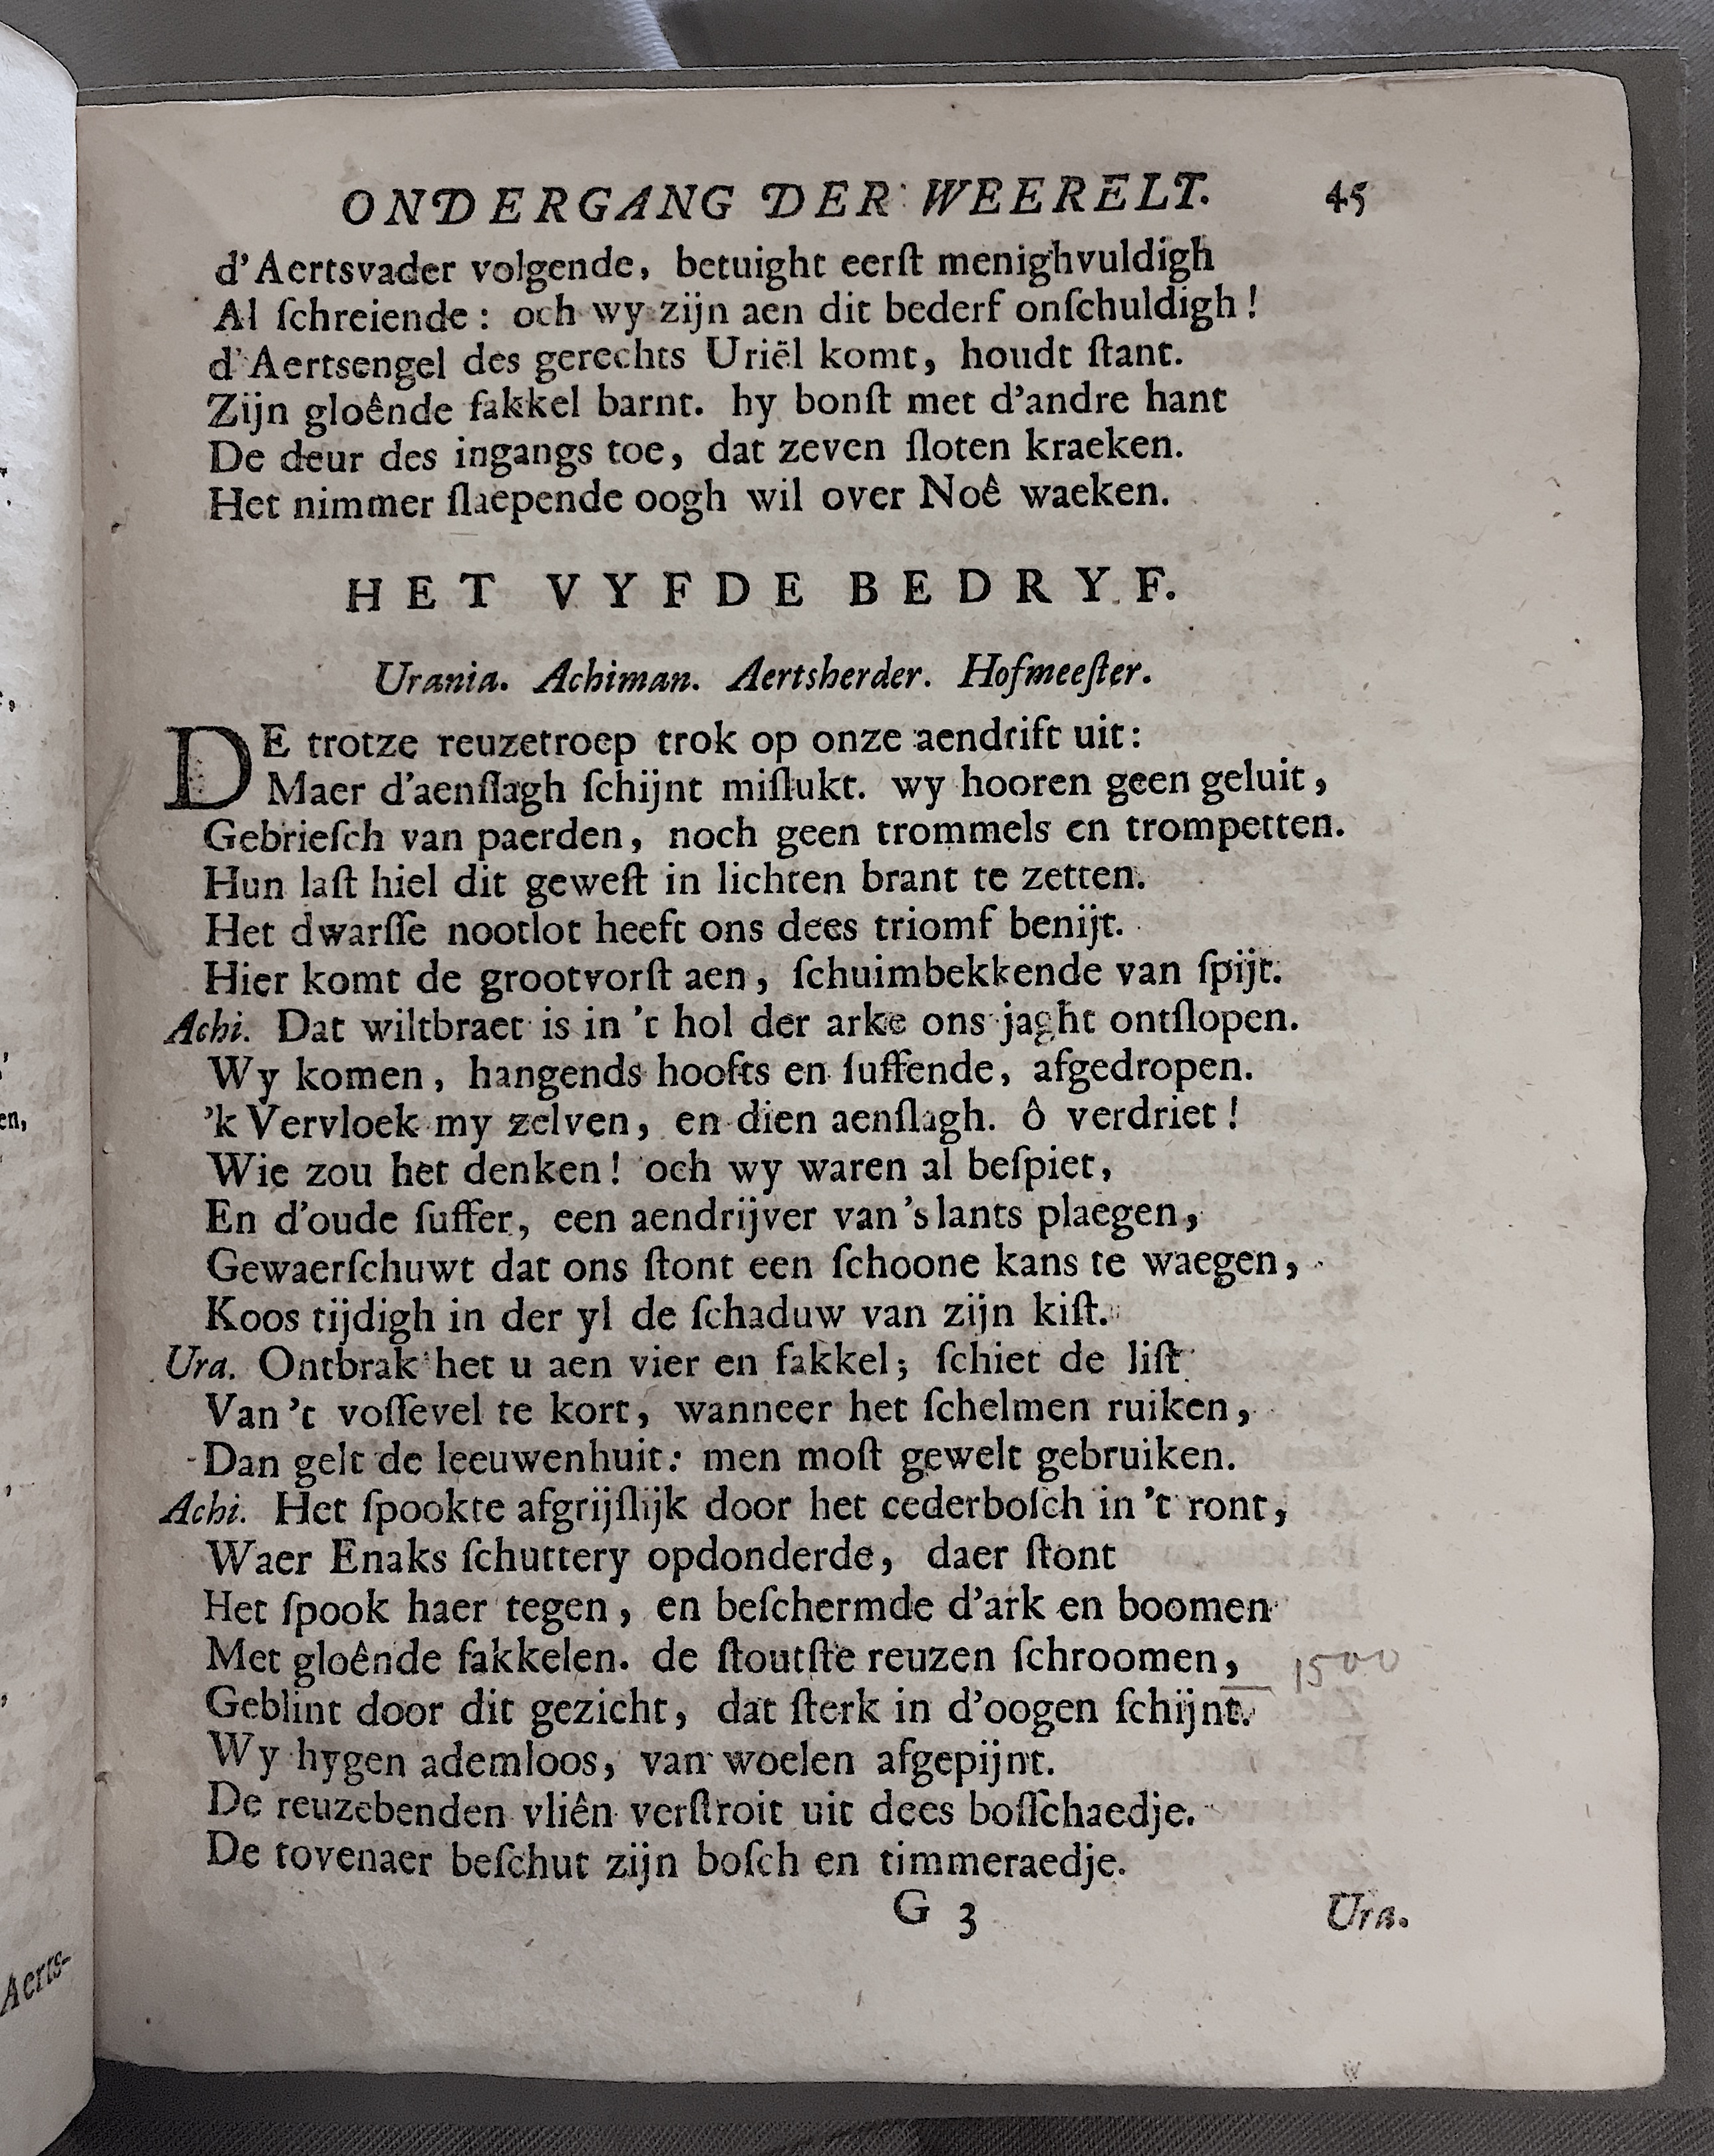 ONDERGANG DER WEERELT. 45
d'Aertsvader volgende, betuight eerſt menighvuldigh
Al ſchreiende: och wy zijn aen dit bederf onſchuldigh!
d'Aertsengel des gerechts Uriël komt, houdt ſtant.
Zijn gloênde fakkel barnt. hy bonſt met d'andre hant
De deur des ingangs toe, dat zeven ſloten kraeken.
Het nimmer ſlaepende oogh wil over Noê waeken.
HET VYFDE BEDRYF.
Urania. Achiman. Aertsherder. Hofmeeſter.
DE trotze reuzetroep trok op onze aendrift uit:
Maer d'aenſlagh ſchijnt miſlukt. wy hooren geen geluit,
Gebrieſch van paerden, noch geen trommels en trompetten.
Hun laſt hiel dit geweſt in lichten brant te zetten.
Het dwarſſe nootlot heeft ons dees triomf benijt.
Hier komt de grootvorſt aen, ſchuimbekkende van ſpijt.
Achi. Dat wiltbraet is in 't hol der arke ons jaght ontſlopen.
Wy komen, hangends hoofts en ſuffende, afgedropen.
'k Vervloek my zelven, en dien aenſlagh. ô verdriet!
Wie zou het denken! och wy waren al beſpiet,
En d'oude ſuffer, een aendrijver van 's lants plaegen,
Gewaerſchuwt dat ons ſtont een ſchoone kans te waegen,
Koos tijdigh in der yl de ſchaduw van zijn kiſt.
Ura. Ontbrak het u aen vier en fakkel; ſchiet de liſt
Van 't voſſevel te kort, wanneer het ſchelmen ruiken,
Dan gelt de leeuwenhuit: men moſt gewelt gebruiken.
Achi. Het ſpookte afgrijſlijk door het cederboſch in 't ront,
Waer Enaks ſchuttery opdonderde, daer ſtont
Het ſpook haer tegen, en beſchermde d'ark en boomen
Met gloênde fakkelen. de ſtoutſte reuzen ſchroomen, 1500
Geblint door dit gezicht, dat ſterk in d'oogen ſchijnt.
Wy hygen ademloos, van woelen afgepijnt.
De reuzebenden vliên verſtroit uit dees boſſchaedje.
De tovenaer beſchut zijn boſch en timmeraedje.
G 3 Ura.
en,
Aerts-